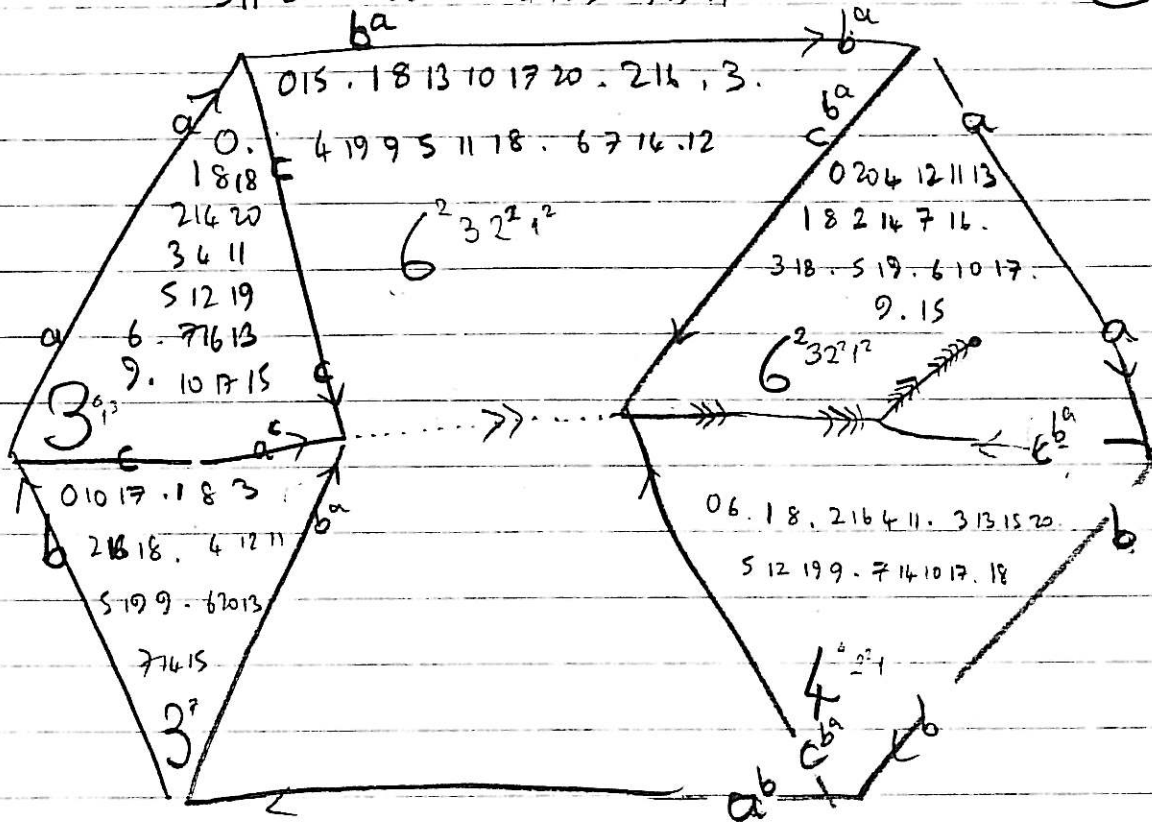 b^a
b^a
0 15 . 1 8 13 10 17 20 . 2 16 . 3 .
4 19 9 5 11 18 . 6 7 14 . 12
6^2 3 2^2 1^2
a
0 .
1 8 18
2 14 20
3 4 11
5 12 19
6 . 7 16 13
9 . 10 17 15
a
c
c
c
a^c
b^a
c
a
0 20 4 12 11 13
1 8 2 14 7 16 .
3 18 . 5 19 . 6 10 17 .
9 . 15
6^2 3 2^2 1^2
a
c^{b^a}
0 10 17 . 1 8 3
2 16 18 . 4 12 11
5 19 9 . 6 20 13
7 14 15
3^7
b
b^a
0 6 . 1 8 . 2 16 4 11 . 3 13 15 20
5 12 19 9 . 7 14 10 17 . 18
b
c^{b^a}
b
c
a^b